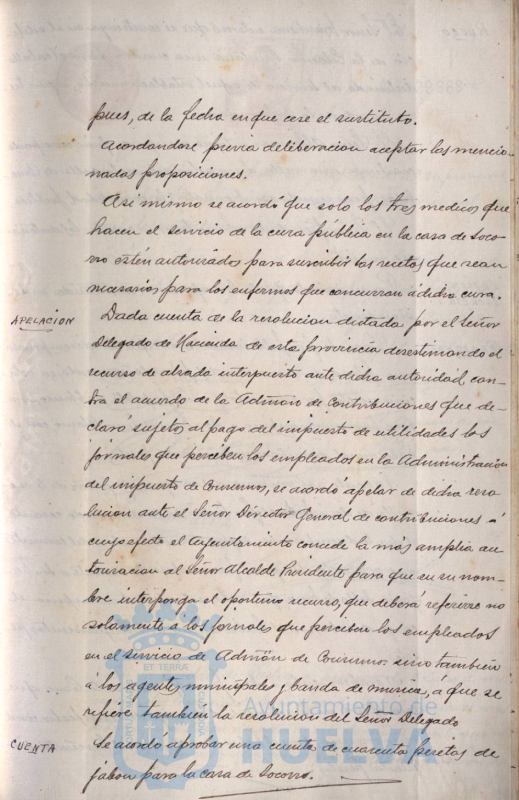 pues, de la fecha en que cese el sustituto.
Acordandose previa deliberacion aceptar las mencio-
nadas proposiciones.
Asi mismo se acordó que solo los tres medicos que
hacen el servicio de la cura pública en la casa de Soco-
rro estén autorizados para suscribir las recetas que sean
necesarias para los enfermos que concurran á dicha cura.
APELACION
Dada cuenta de la resolucion dictada por el Señor
Delegado de Hacienda de esta provincia desestimando el
recurso de alzada interpuesto ante dicha autoridad con-
tra el acuerdo de la Admón de Contribuciones que de-
claró sujetos al pago del impuesto de utilidades los
jornales que perciben los empleados en la Administracion
del impuesto de Consumos, se acordó apelar de dicha reso-
lucion ante el Señor Director General de contribuciones á
cuyo efecto el Ayuntamiento concede la más amplia au-
torizacion al Señor Alcalde Presidente para que en su nom-
bre interponga el oportuno recurso, que deberá referirse no
solamente á los jornales que perciben los empleados
en el servicio de Admón de Consumos sino tambien
á los agentes municipales, banda de musica, á que se
refiere tambien la resolucion del Señor Delegado
CUENTA
Se acordó aprobar una cuenta de cuarenta pesetas de
jabon para la casa de Socorro.
Ayuntamiento de
HUELVA